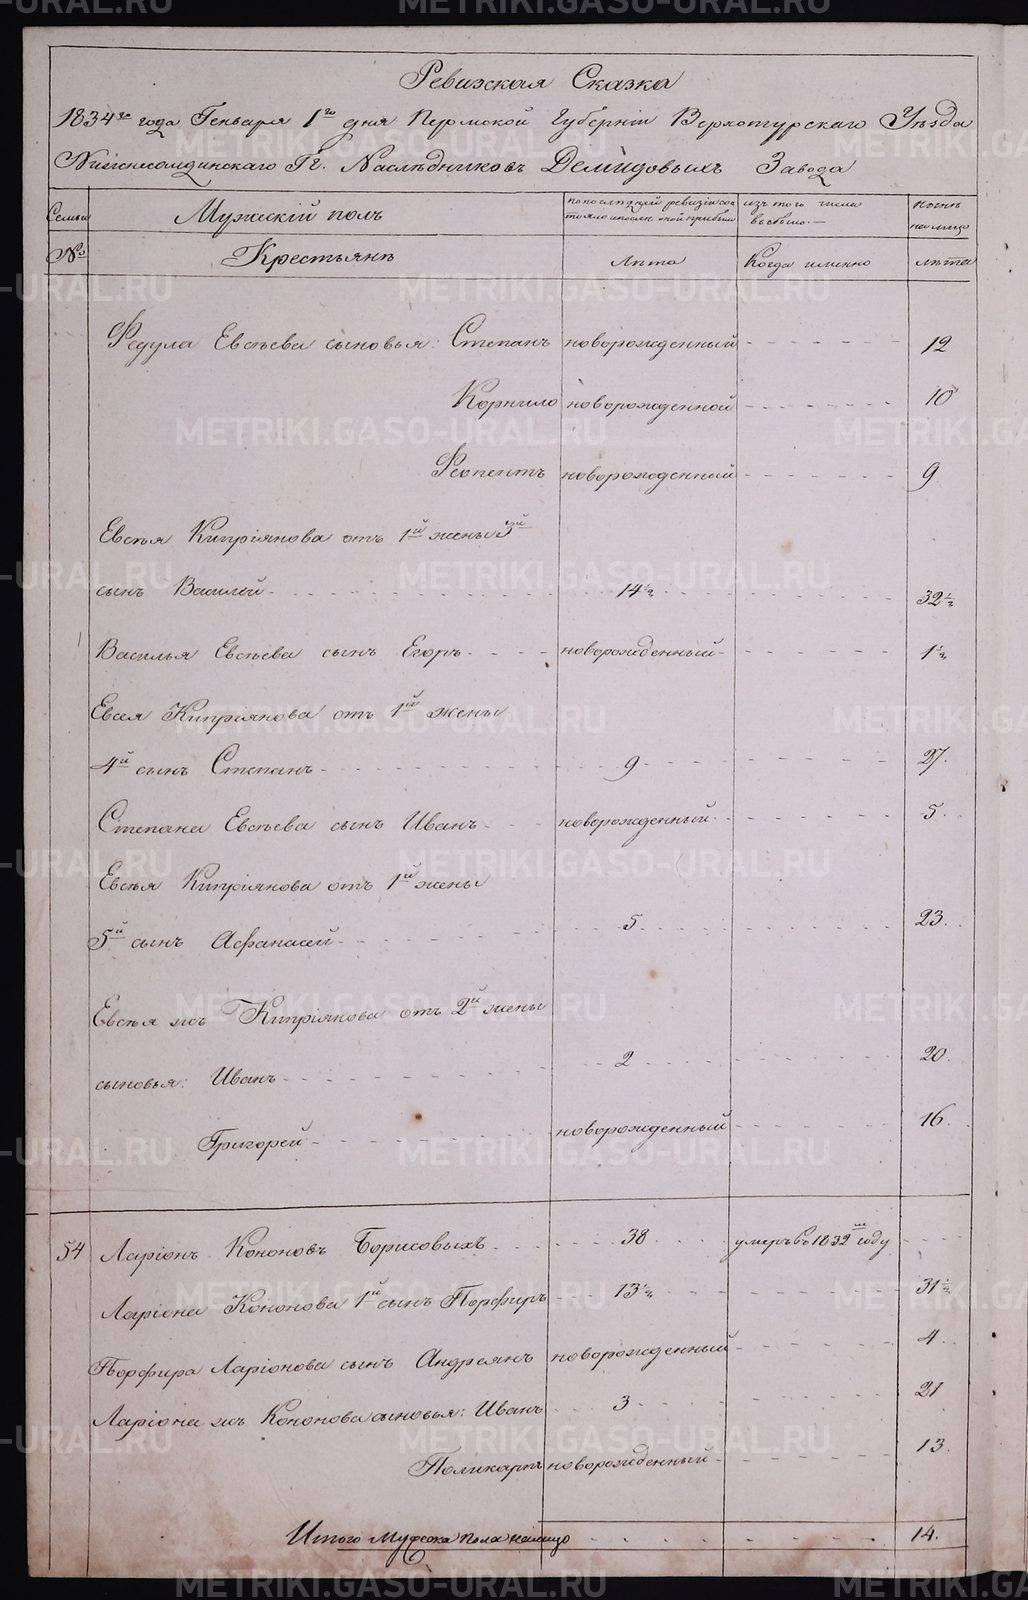 Ревизская Сказка
1834го года Генваря 1го дня Пермской Губернiи Верхотурскаго Уѣзда
Нижнесалдинскаго Гг. Наслѣдниковъ Демидовыхъ Завода
Семьи
Мужескiй полъ
по последней ревизiи сос
тояло и после оной прибыло
изъ того числа
выбыло
нынѣ
на лицо
№
Крестьянъ
Лѣта
Когда именно
лѣта
Федула Евсѣева сыновья: Степанъ новорожденный 12
Корнило новорожденной 10
новорожденный 9
Евсѣя Кипрiянова отъ 1й жены 3й
сынъ Василей 14½ 32½
Василья Евсѣева сынъ Егоръ новорожденный 1½
Евсея Кипрiянова отъ 1й жены
4й сынъ Степанъ 9 27.
Степана Евсѣева сынъ Иванъ новорожденный 5.
Евсѣя Кипрiянова отъ 1й жены
5й сынъ Афанасей 5 23.
Евсѣя жъ Кипрiянова отъ 2й жены
сыновья: Иванъ 2 20.
Григорей новорожденный 16.
54 Ларiонъ Кононовъ Борисовыхъ 38 умеръ въ 1832м году
Ларiона Кононова 1й сынъ Порфиръ 13½ 31½
Порфира Ларiонова сынъ Андреянъ новорожденный 4.
Ларiона жъ Кононова сыновья: Иванъ 3 21
Поликарпъ новорожденный 13.
Итого мужска пола налицо 14.
METRIKI.GASO-URAL.RU